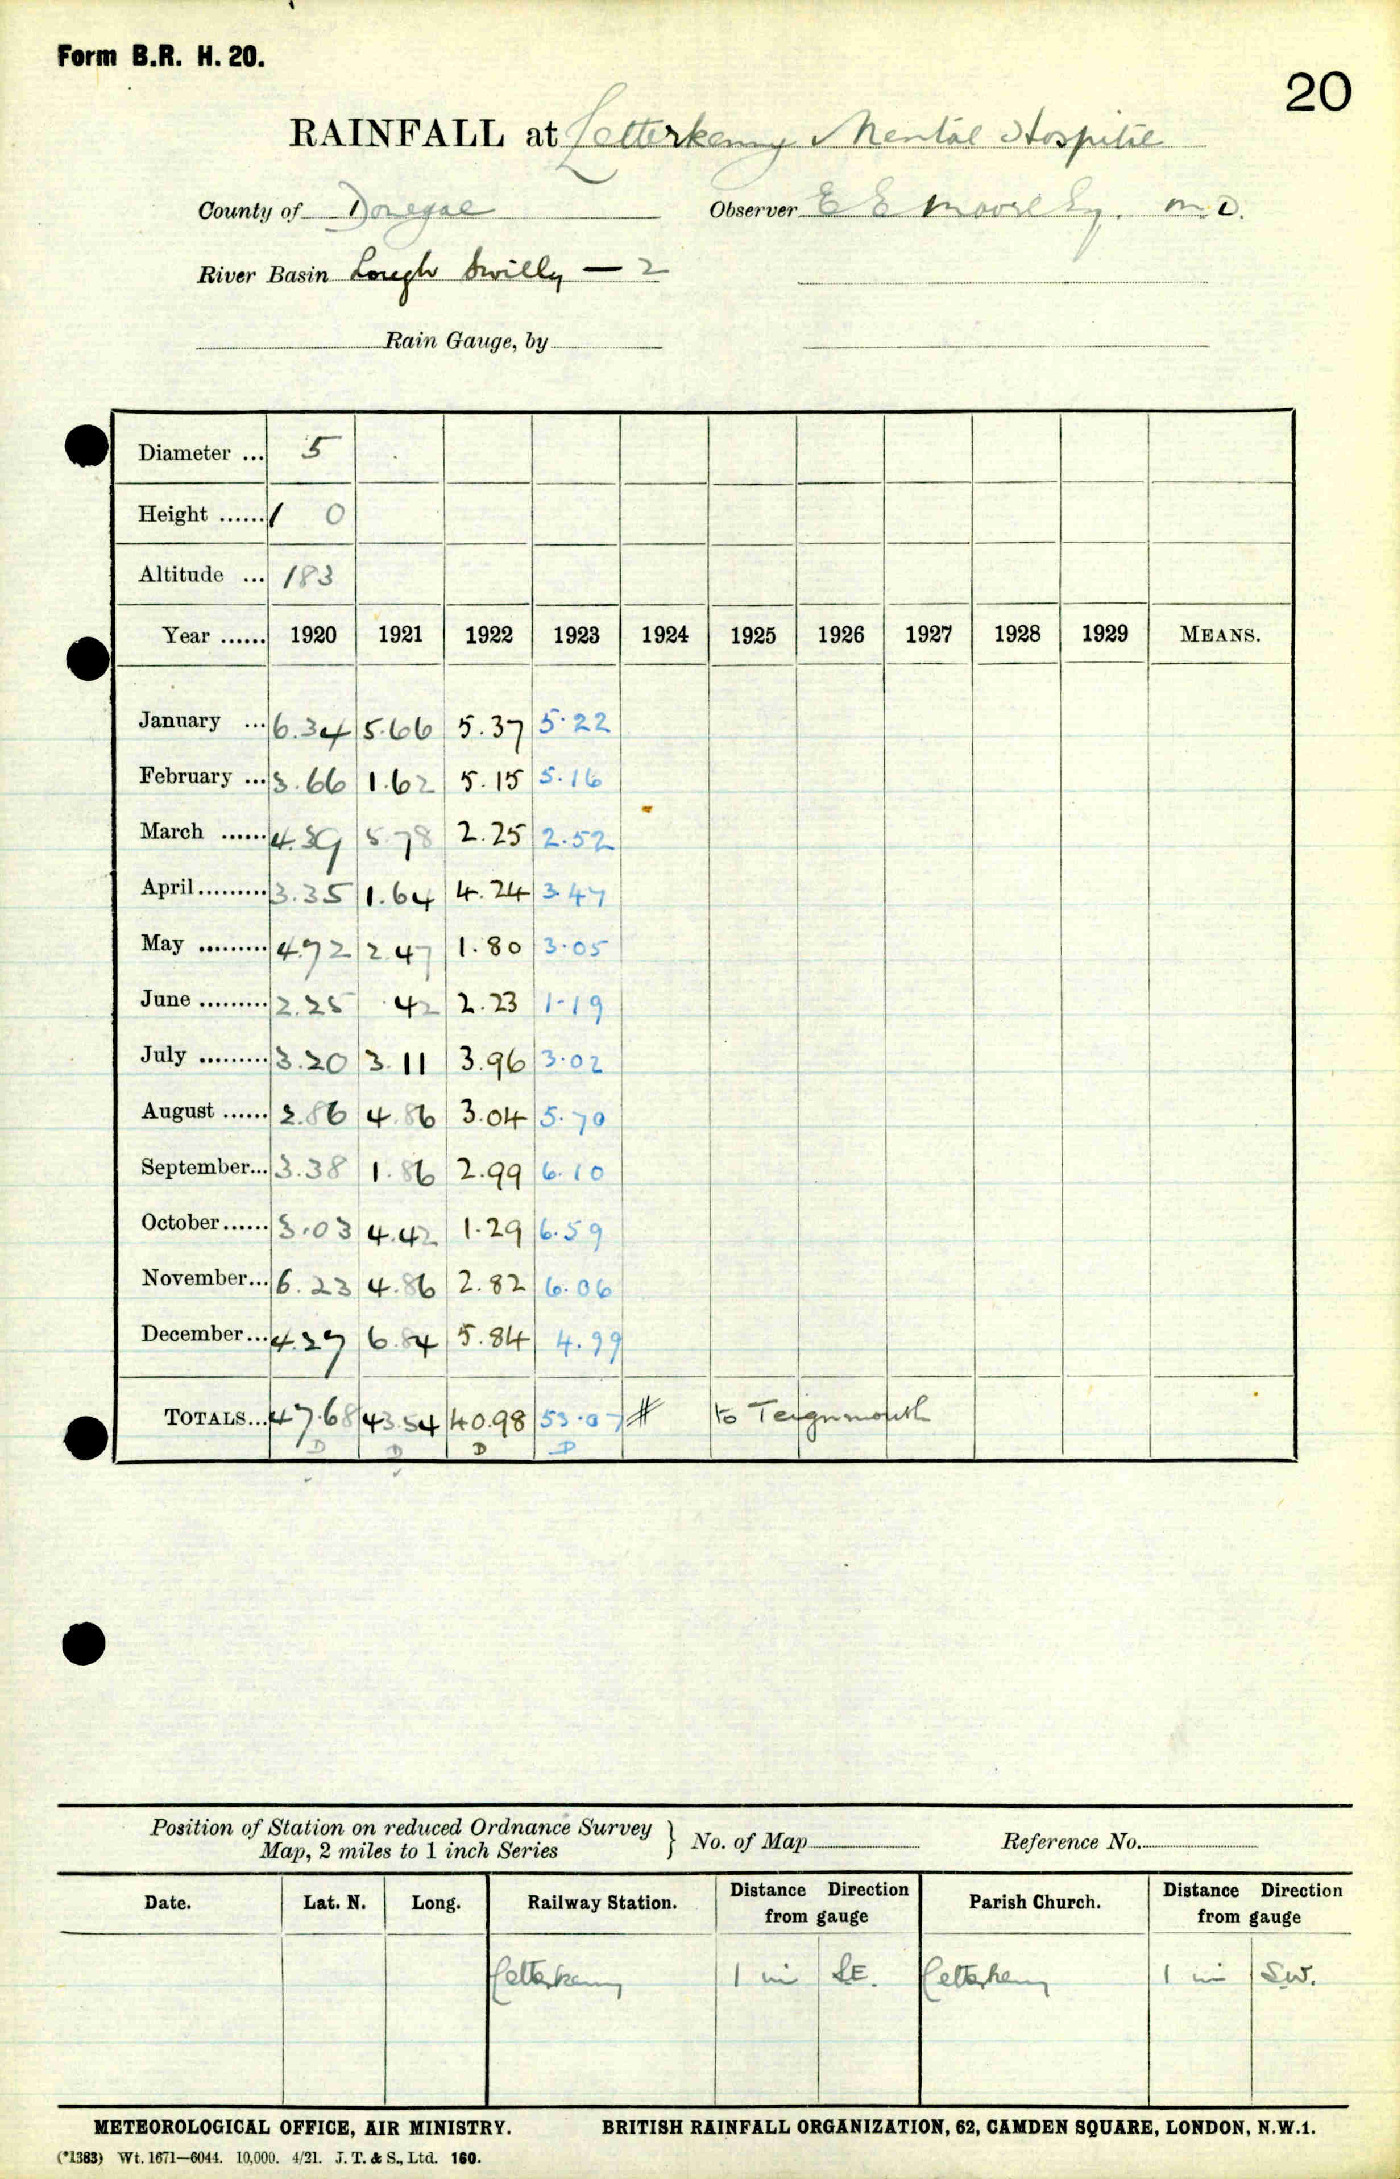 Form B.R. H. 20.
20
RAINFALL at Letterkenny Mental Hospital
County of Donegal Observer E E Moore Esq. M.D.
River Basin Lough Swilly — 2
Rain Gauge, by
Diameter ... 5
Height ...... 1 0
Altitude ... 183
Year ...... 1920 1921 1922 1923 1924 1925 1926 1927 1928 1929 MEANS.
January ... 6.34 5.66 5.37 5.22
February ... 3.66 1.62 5.15 5.16
March ...... 4.39 5.78 2.25 2.52
April ......... 3.35 1.64 4.24 3.47
May ......... 4.72 2.47 1.80 3.05
June ......... 2.25 .42 2.23 1.19
July ......... 3.20 3.11 3.96 3.02
August ...... 2.86 4.86 3.04 5.70
September... 3.38 1.86 2.99 6.10
October...... 3.03 4.42 1.29 6.59
November... 6.23 4.86 2.82 6.06
December... 4.27 6.84 5.84 4.99
TOTALS... 47.68 43.54 40.98 53.07 # to Teignmouth
D D D D
Position of Station on reduced Ordnance Survey Map, 2 miles to 1 inch Series } No. of Map Reference No.
Date. Lat. N. Long. Railway Station. Distance Direction from gauge Parish Church. Distance Direction from gauge
Letterkenny 1 mi S.E. Letterkenny 1 mi S.W.
METEOROLOGICAL OFFICE, AIR MINISTRY. BRITISH RAINFALL ORGANIZATION, 62, CAMDEN SQUARE, LONDON, N.W.1.
(*1383) Wt. 1671—6044. 10,000. 4/21. J. T. & S., Ltd. 160.